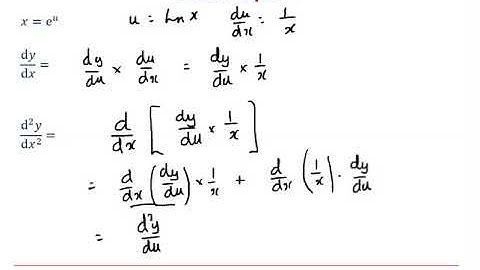 x = eᵘ u = ln x du/dx = 1/x
dy/dx = dy/du × du/dx = dy/du × 1/x
d²y/dx² = d/dx [ dy/du × 1/x ]
= d/dx (dy/du) × 1/x + d/dx (1/x) · dy/du
= d²y/du